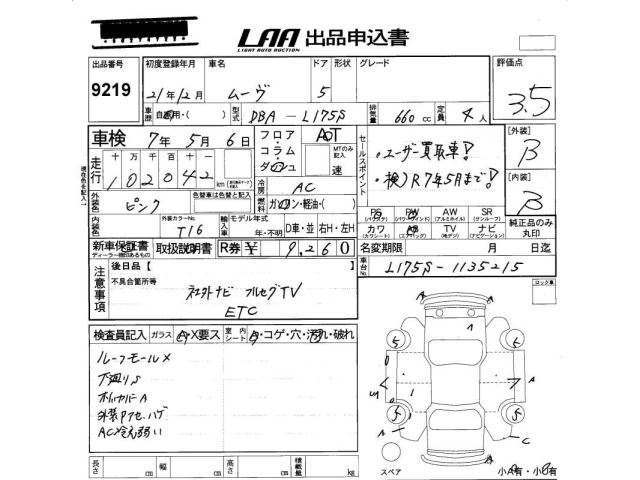 LAA 出品申込書
LIGHT AUTO AUCTION
出品番号 初度登録年月 車名 ドア 形状 グレード 評価点
9219 21年12月 ムーヴ 5 3.5
車歴 自家用・( ) 型式 DBA - L175S 排気量 660 cc 定員 4人
車検 7年 5月 6日
フロア・コラム・ダッシュ AT
MTのみ記入 速
セールスポイント
・ユーザー買取車!
・検)R7年5月まで!
[外装] B
[内装] B
走行 十 万 千 百 十 一
102042 km
冷房 AC
外装色 ピンク 色替車は色替と記入
燃料 ガソリン・軽油・( )
PS (パワステ) PW (パワーウインド) AW (アルミホイル) SR (サンルーフ)
カワ (カワシート) AB (エアバッグ) TV (地デジ) ナビ (ナビゲーション)
純正品のみ丸印
内装色 外装カラーNo. T16 輸入車 モデル年式 年・不明 D車・並 右H・左H
新車保証書 ディーラー捺印あるもの 取扱説明書 R券 ¥ 9,260
名変期限 月 日迄
車台No. L175S-1135215
注意事項 後日品【 】
不具合箇所等
社外ナビ フルセグTV
ETC
ロック車
検査員記入 ガラス X要ス 室内シート コゲ・穴・汚れ・破れ
ルーフモールX
下廻りS
A
外装Pアセ、ハゲ
AC冷え弱い
長さ cm 幅 cm 高さ cm 積載量 kg
スペア